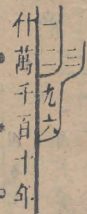 三
一二九六
什萬千百十年